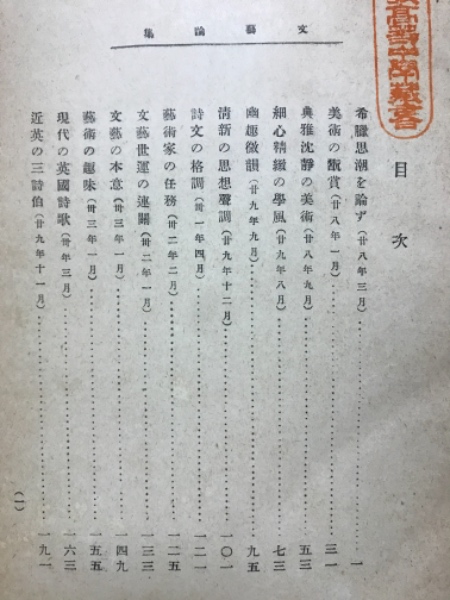 文藝論集
目次
希臘思潮を論ず(廿八年三月)……一
美術の翫賞(廿八年一月)……三一
典雅沈靜の美術(廿八年九月)……五三
細心精緻の學風(廿九年八月)……七三
幽趣微韻(廿九年九月)……九五
清新の思想聲調(廿九年十二月)……一〇一
詩文の格調(卅一年四月)……一二一
藝術家の任務(卅二年二月)……一二五
文藝世運の連關(卅二年一月)……一三三
文藝の本意(卅三年一月)……一四九
藝術の趣味(卅三年一月)……一五五
現代の英國詩歌(卅年三月)……一六三
近英の三詩伯(廿九年十一月)……一九一
(一)
高等中學藏書